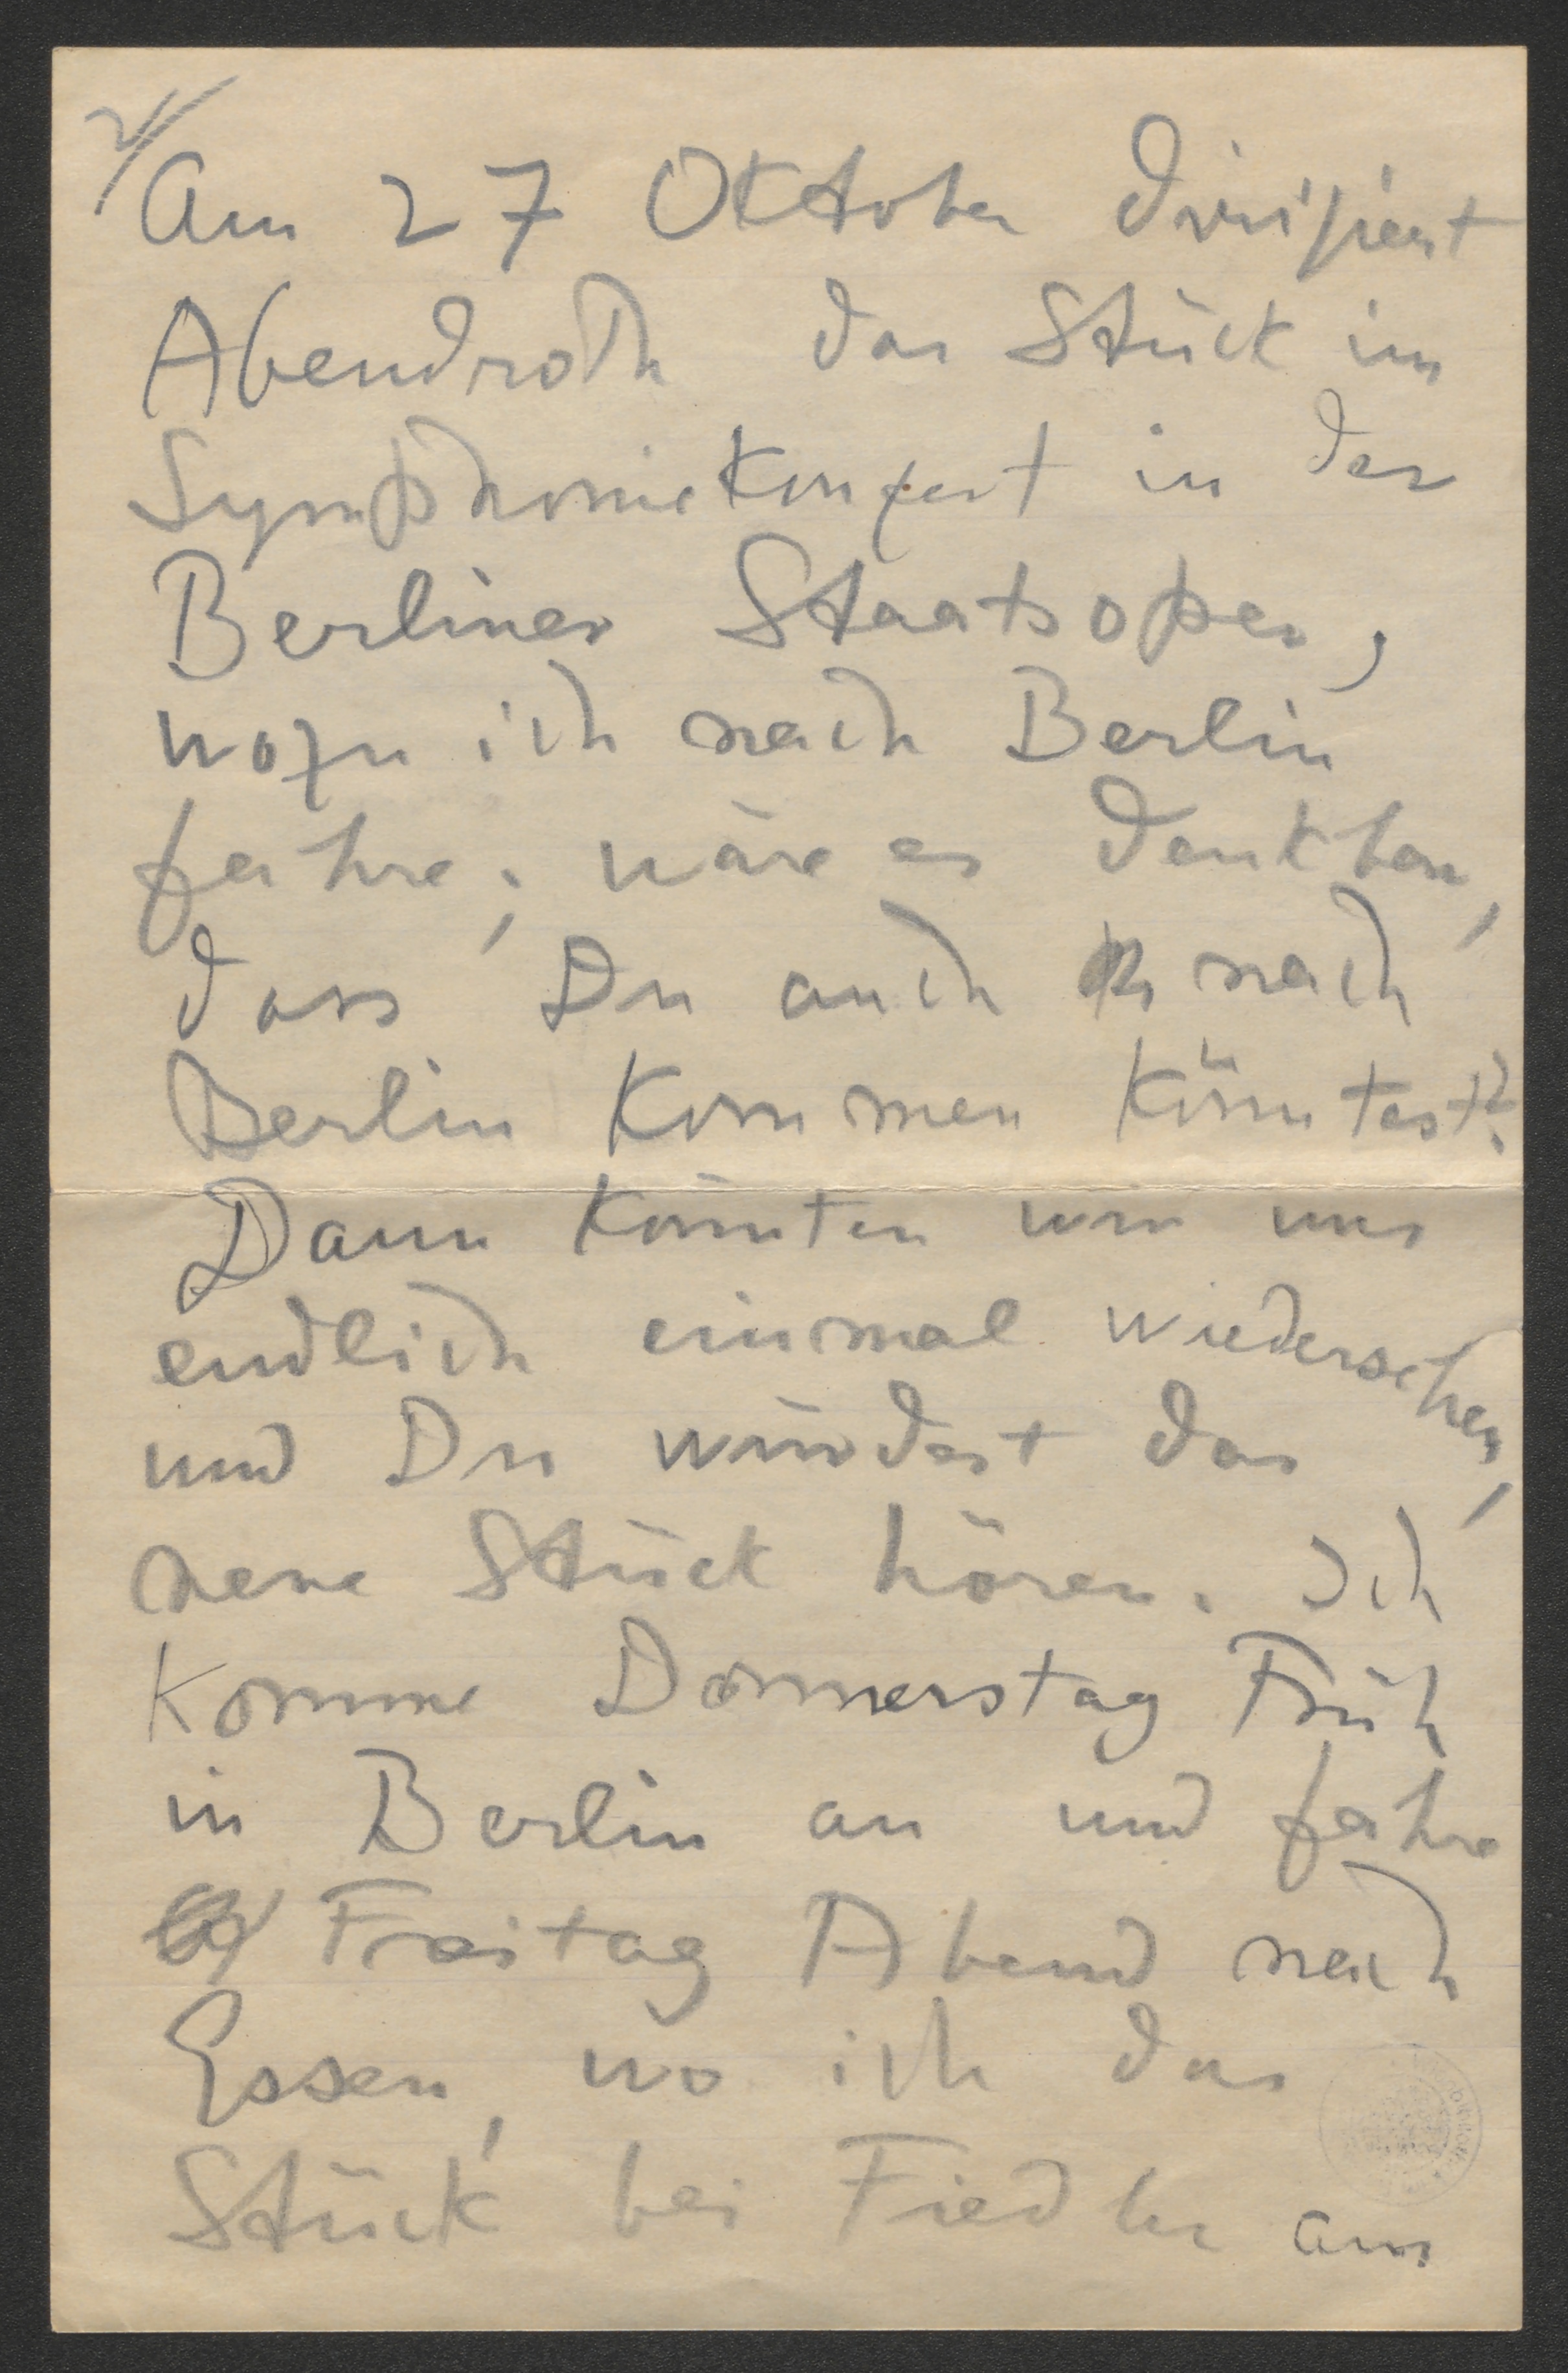 2/
Am 27 Oktober dirigiert
Abendroth das Stück im
Symphoniekonzert in der
Berliner Staatsoper,
wozu ich nach Berlin
fahre; wäre es denkbar,
dass Du auch nach
Berlin kommen könntest?
Dann könnten wir uns
endlich einmal wiedersehen,
und Du würdest das
neue Stück hören. Ich
komme Donnerstag Früh
in Berlin an und fahre
Freitag Abend nach
Essen, wo ich das
Stück bei Fiedler am